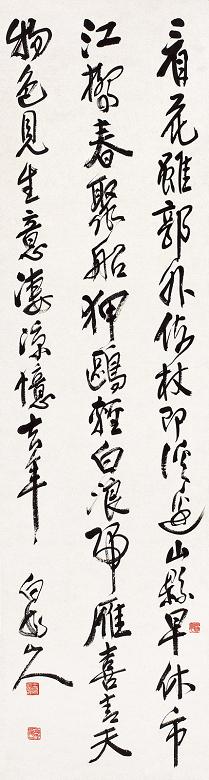 看花雖郭外倚杖即溪邊山縣早休市
江橋春聚船狎鷗輕白浪歸雁喜青天
物色見生意淒涼憶去年
白龍山人